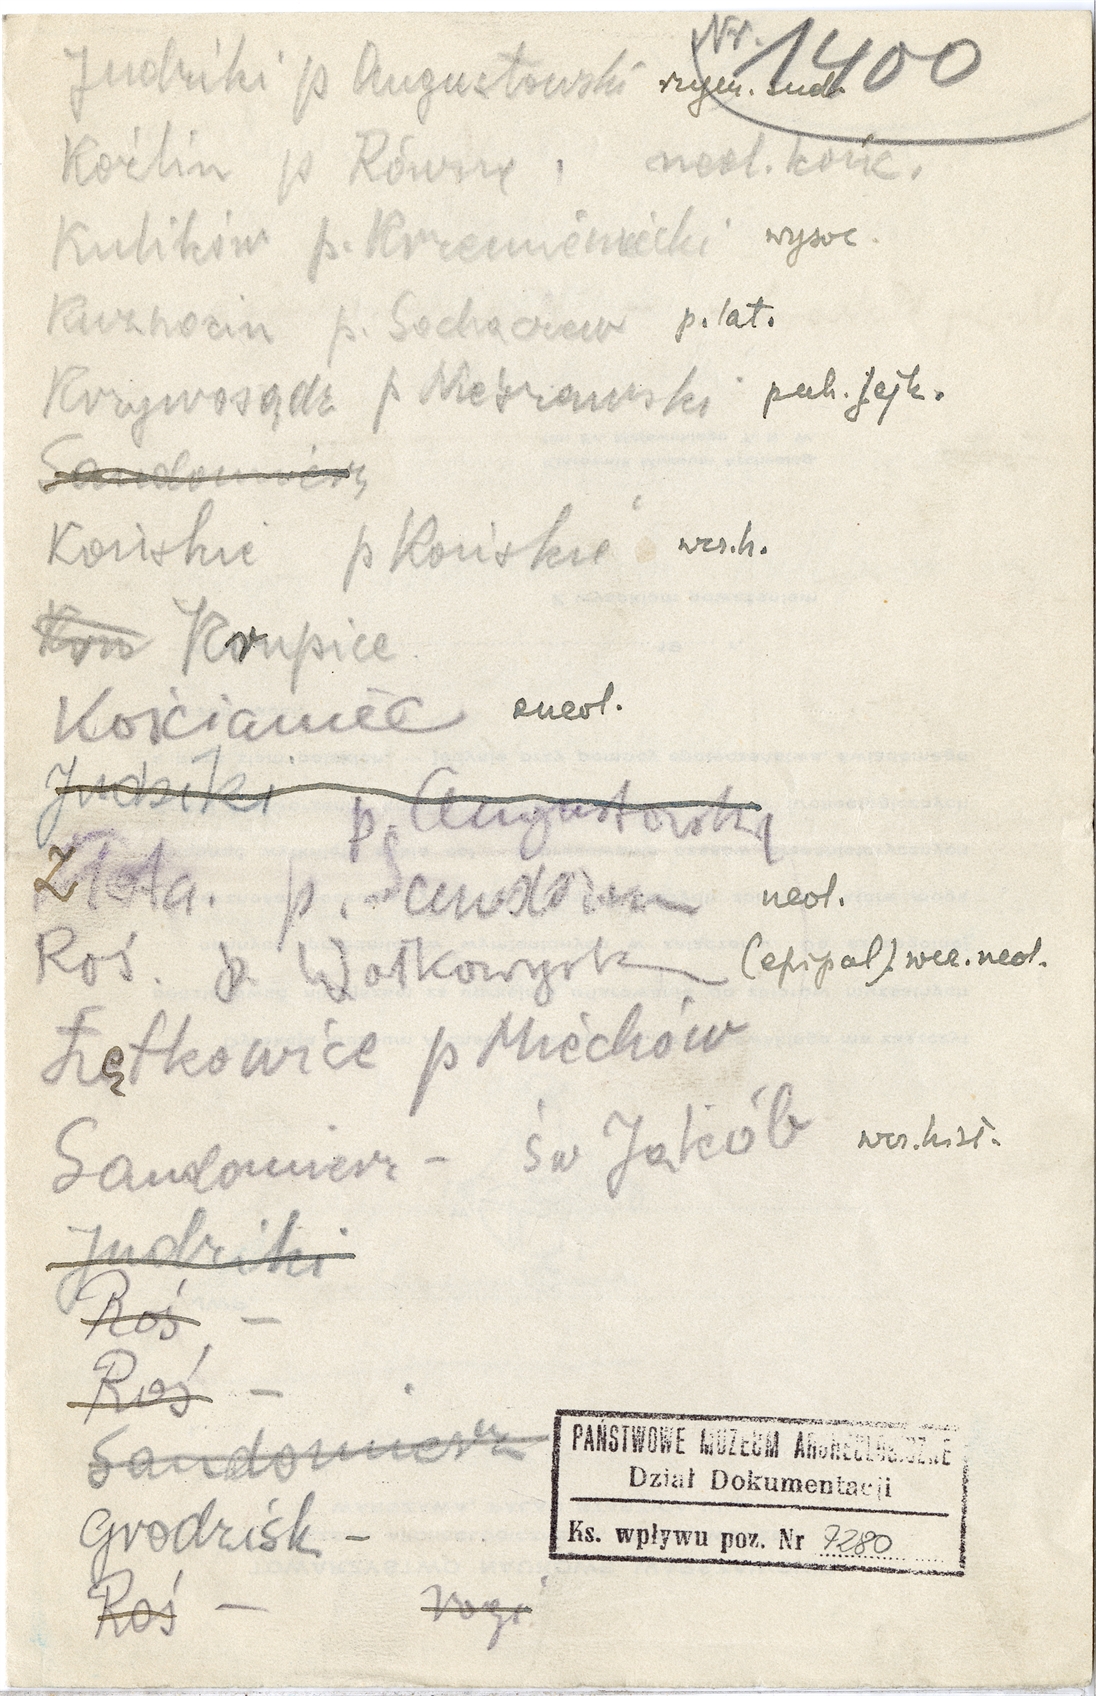 Nr. 1400
Judziki p Augustowski rzym.
Koźlin p Równe, neol. końc.
Kulików p. Krzemieniecki wysoc.
Kuznocin p. Sochaczew p. lat.
Krzywosądz p Nieszawski puh. lejk.
Sandomierz
Końskie p Końskie wcs. h.
Kru Krupice
Kościaniec eneol.
Judziki p. Augustowski
Złota. p. Sandom neol.
Roś. p. Wołkowysk (epipal). wcz. neol.
Łętkowice p Miechów
Sandomierz - św Jakób wcs. hist.
Judziki
Roś -
Roś -
Sandomierz
Grodzisk -
Roś - rogi
PAŃSTWOWE MUZEUM ARCHEOLOGICZNE
Dział Dokumentacji
Ks. wpływu poz. Nr 7280